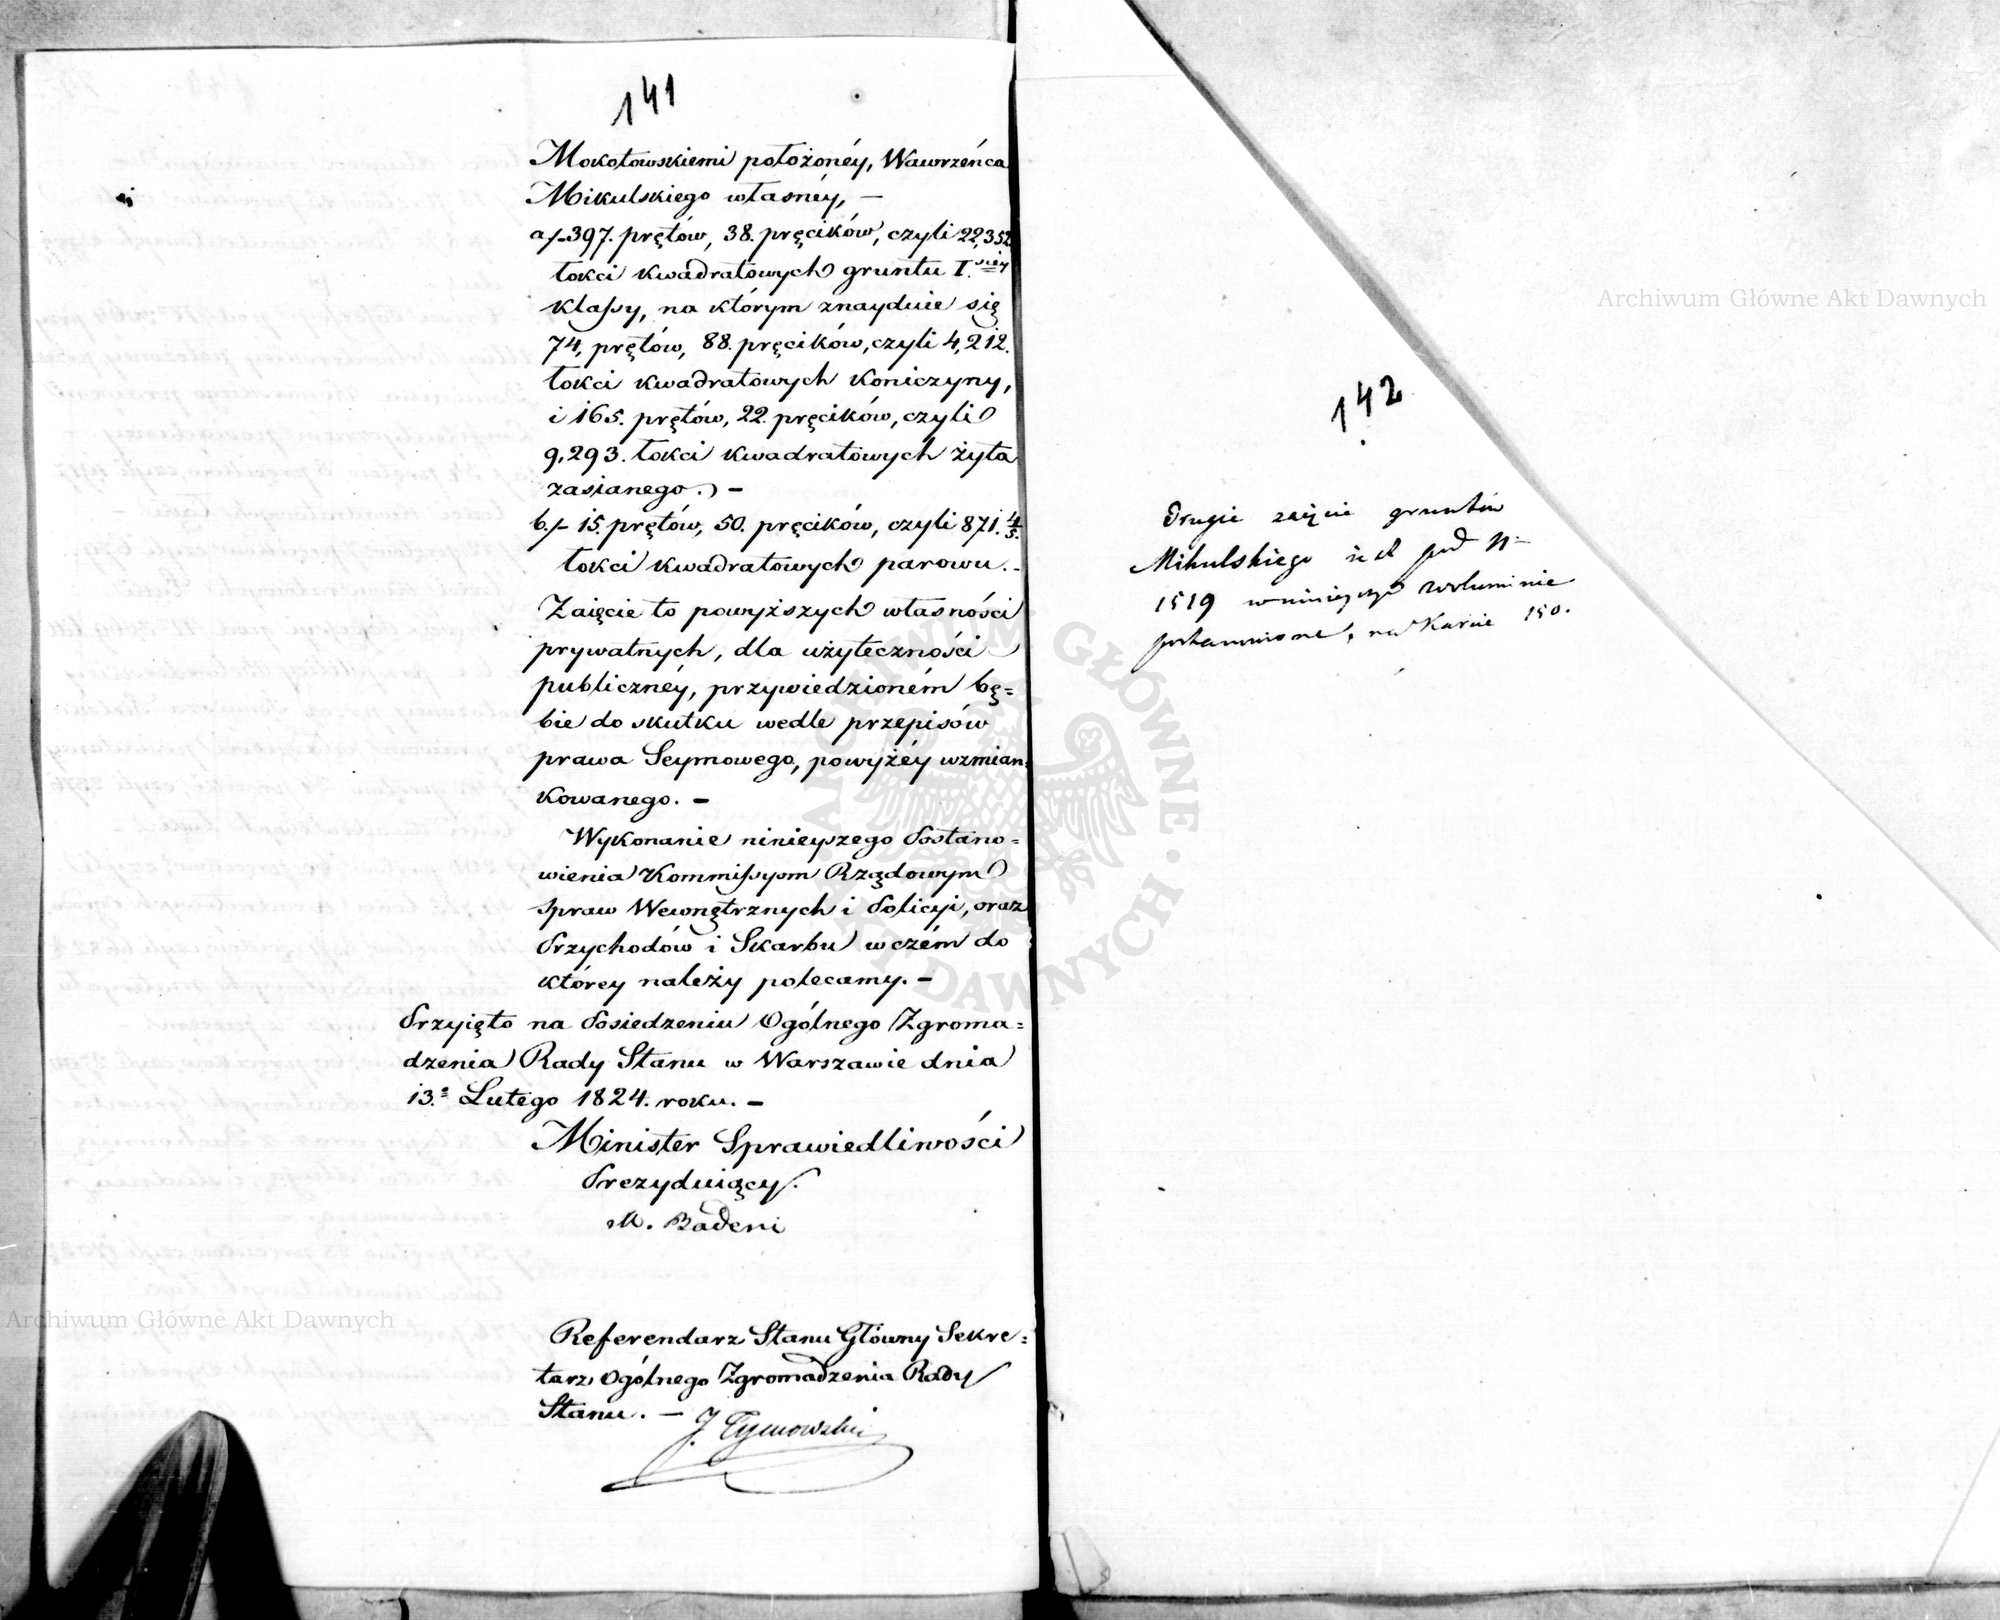 141
Mokotowskiemi położonéy, Wawrzeńca
Mikulskiego własnéy, —
a/-397. prętów, 38. pręcików, czyli 22,352
łokci kwadratowych gruntu I.széy
klassy, na którym znayduie się
74, prętów, 88. pręcików, czyli 4,212.
łokci kwadratowych koniczyny,
i 165. prętów, 22. pręcików, czyli
9,293. łokci kwadratowych żyta
zasianego.) —
b/- 15. prętów, 50. pręcików, czyli 871. 4/5.
łokci kwadratowych parowu. -
Zaięcie to powyższych własności
prywatnych, dla użyteczności
publicznéy, przywiedzioném bę=
dzie do skutku wedle przepisów
prawa Seymowego, powyżéy wzmian=
kowanego. —
Wykonanie ninieyszego Postano=
wienia Kommissyom Rządowym
Spraw Wewnętrznych i Policyi, oraz
Przychodów i Skarbu w czém do
którey należy polecamy. —
Przyięto na Posiedzeniu Ogólnego Zgroma=
dzenia Rady Stanu w Warszawie dnia
13.º Lutego 1824. roku. —
Minister Sprawiedliwości
Prezyduiący.
M. Badeni
Referendarz Stanu Główny Sekre=
tarz Ogólnego Zgromadzenia Rady
Stanu. — J. Tymowski
142
Drugie zaięcie gruntów
Mikulskiego iest pod N=
1519 w ninieyszym woluminie
na Karcie 150.
Archiwum Główne Akt Dawnych
Archiwum Główne Akt Dawnych
ARCHIWUM GŁÓWNE AKT DAWNYCH